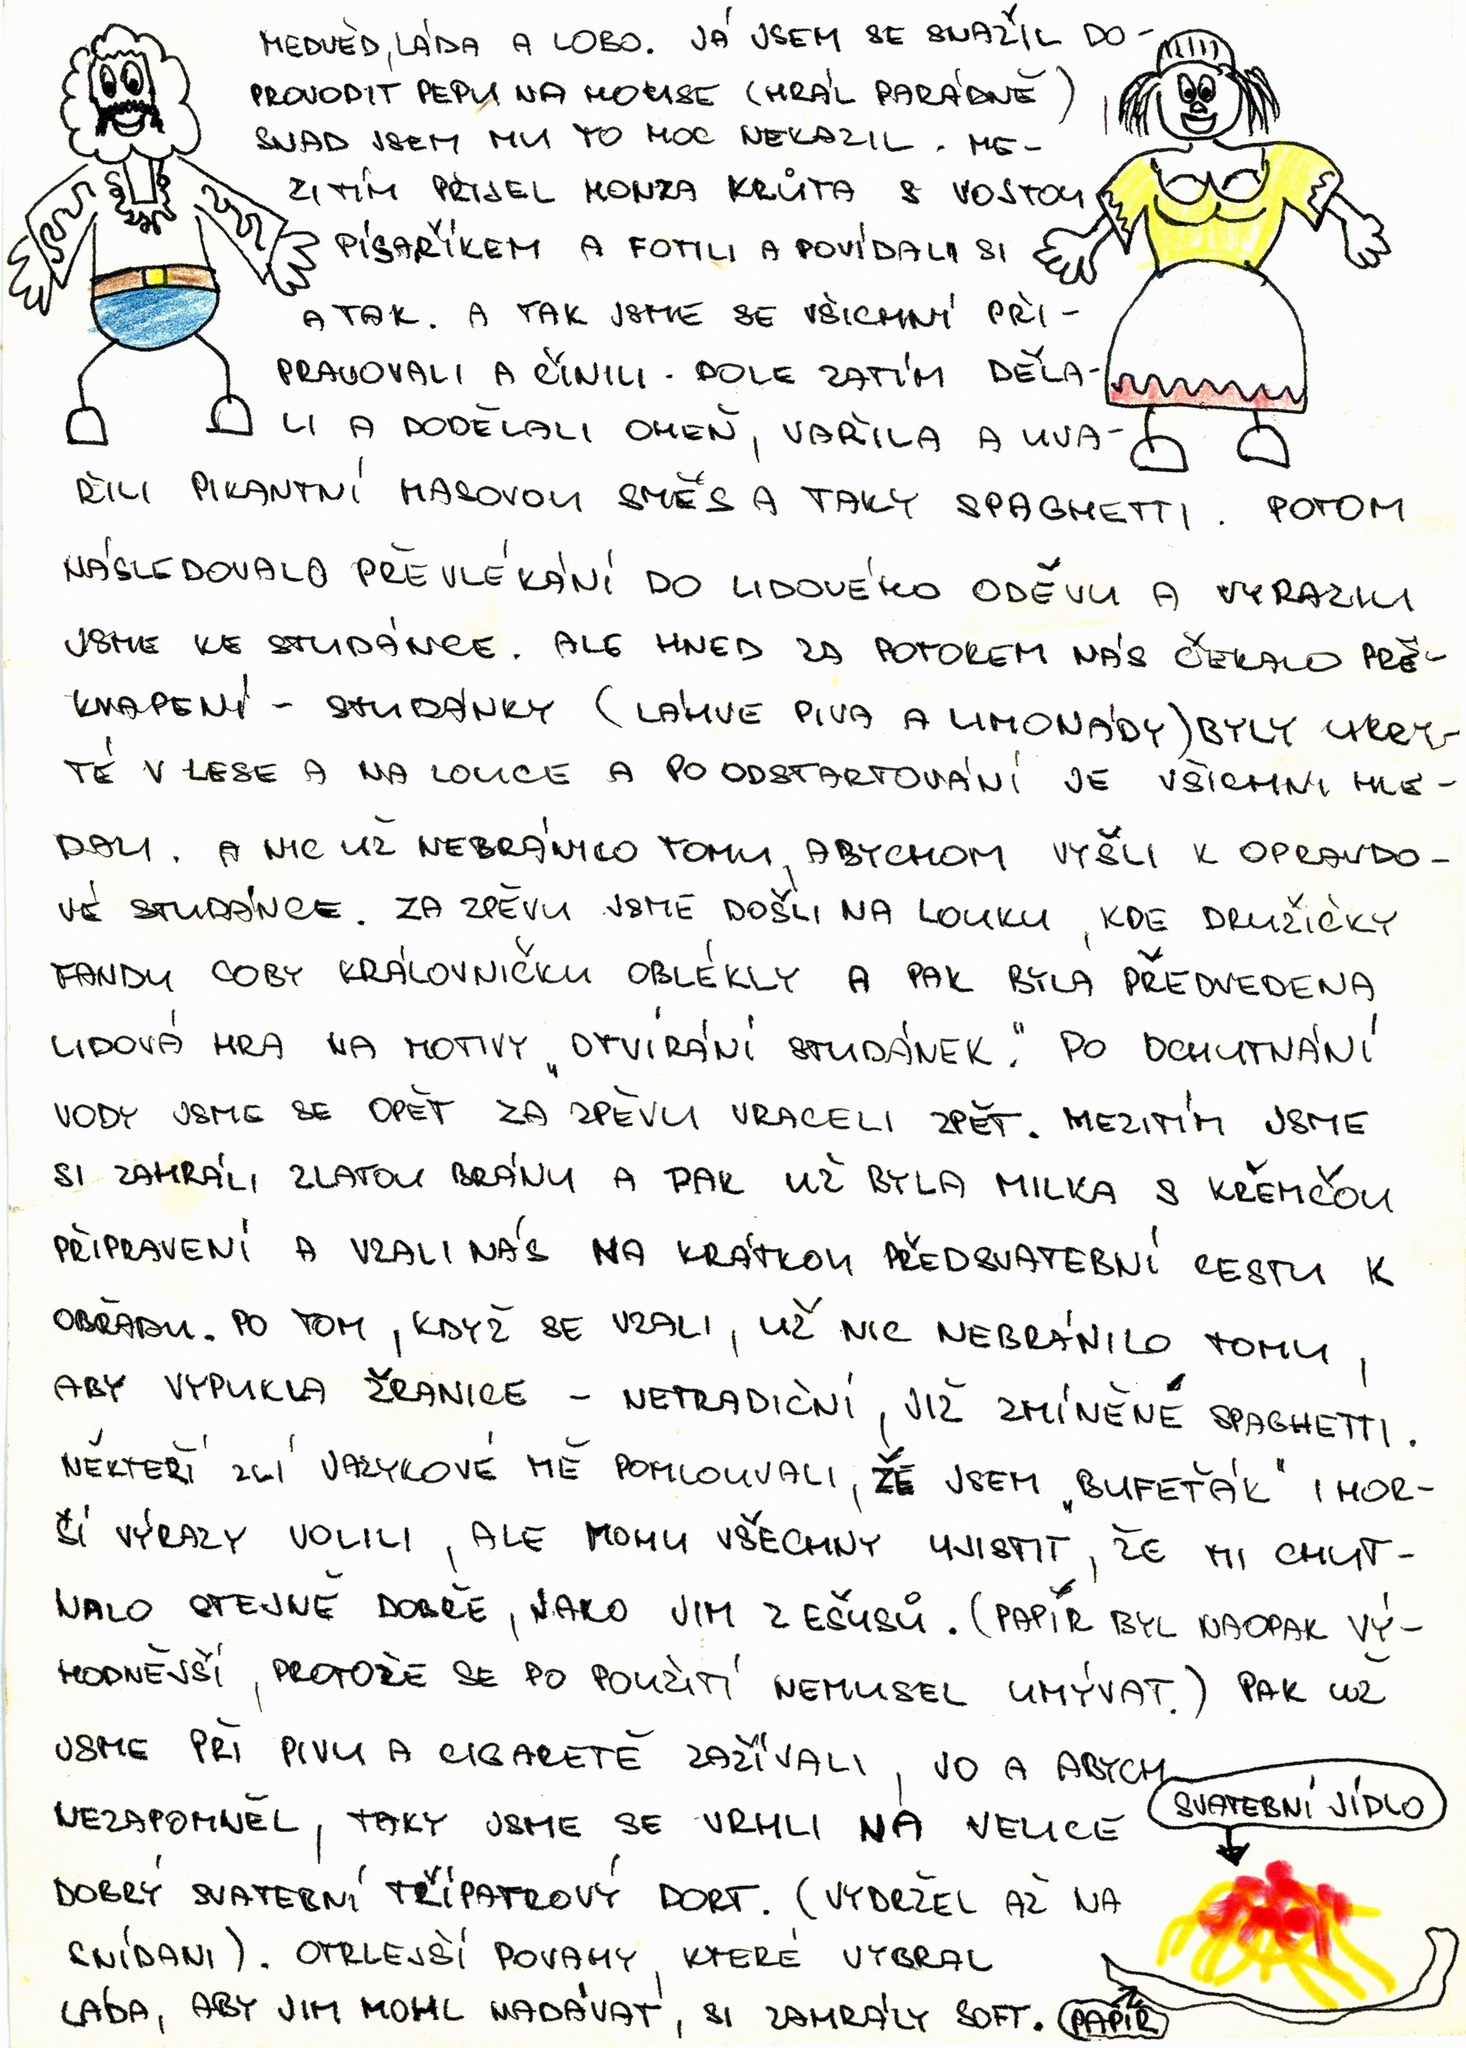 MEDVĚD, LÁDA A LOBO. JÁ JSEM SE SNAŽIL DO-
PROVODIT PEPU NA HOUSE (HRÁL PARÁDNĚ)
SNAD JSEM MU TO MOC NEKAZIL. ME-
ZITÍM PŘIJEL HONZA KRŮTA S VOJTOU
PÍSAŘÍKEM A FOTILI A POVÍDALI SI
A TAK. A TAK JSME SE VŠICHNI PŘI-
PRAVOVALI A ČINILI. DOLE ZATÍM DĚLA-
LI A DODĚLALI OHEŇ, VAŘILA A UVA-
ŘILI PIKANTNÍ MASOVOU SMĚS A TAKY SPAGHETTI. POTOM
NÁSLEDOVALO PŘEVLÉKÁNÍ DO LIDOVÉHO ODĚVU A VYRAZILI
JSME KE STUDÁNCE. ALE HNED ZA POTOKEM NÁS ČEKALO PŘE-
KVAPENÍ - STUDÁNKY (LÁHVE PIVA A LIMONÁDY) BYLY UKRY-
TÉ V LESE A NA LOUCE A PO ODSTARTOVÁNÍ JE VŠICHNI HLE-
DALI. A NIC UŽ NEBRÁNILO TOMU, ABYCHOM VYŠLI K OPRAVDO-
VÉ STUDÁNCE. ZA ZPĚVU JSME DOŠLI NA LOUKU, KDE DRUŽIČKY
FANDU COBY KRÁLOVNIČKU OBLÉKLY A PAK BYLA PŘEDVEDENA
LIDOVÁ HRA NA MOTIVY „OTVÍRÁNÍ STUDÁNEK". PO OCHUTNÁNÍ
VODY JSME SE OPĚT ZA ZPĚVU VRACELI ZPĚT. MEZITÍM JSME
SI ZAHRÁLI ZLATOU BRÁNU A PAK UŽ BYLA MILKA S KŘEMČOU
PŘIPRAVENÍ A VZALI NÁS NA KRÁTKOU PŘEDSVATEBNÍ CESTU K
OBŘADU. PO TOM, KDYŽ SE VZALI, UŽ NIC NEBRÁNILO TOMU,
ABY VYPUKLA ŽRANICE - NETRADIČNÍ, JIŽ ZMÍNĚNÉ SPAGHETTI.
NĚKTEŘÍ ZLÍ JAZYKOVÉ MĚ POMLOUVALI, ŽE JSEM „BUFEŤÁK" I HOR-
ŠÍ VÝRAZY VOLILI, ALE MOHU VŠECHNY UJISTIT, ŽE MI CHUT-
NALO STEJNĚ DOBŘE, JAKO JIM Z EŠUSŮ. (PAPÍR BYL NAOPAK VÝ-
HODNĚJŠÍ, PROTOŽE SE PO POUŽITÍ NEMUSEL UMÝVAT.) PAK UŽ
JSME PŘI PIVU A CIGARETĚ ZAŽÍVALI, JO A ABYCH
NEZAPOMNĚL, TAKY JSME SE VRHLI NA VELICE
DOBRÝ SVATEBNÍ TŘÍPATROVÝ DORT. (VYDRŽEL AŽ NA
SNÍDANI). OTRLEJŠÍ POVAHY, KTERÉ VYBRAL
LÁĎA, ABY JIM MOHL NADÁVAT, SI ZAHRÁLY SOFT.
SVATEBNÍ JÍDLO
PAPÍR